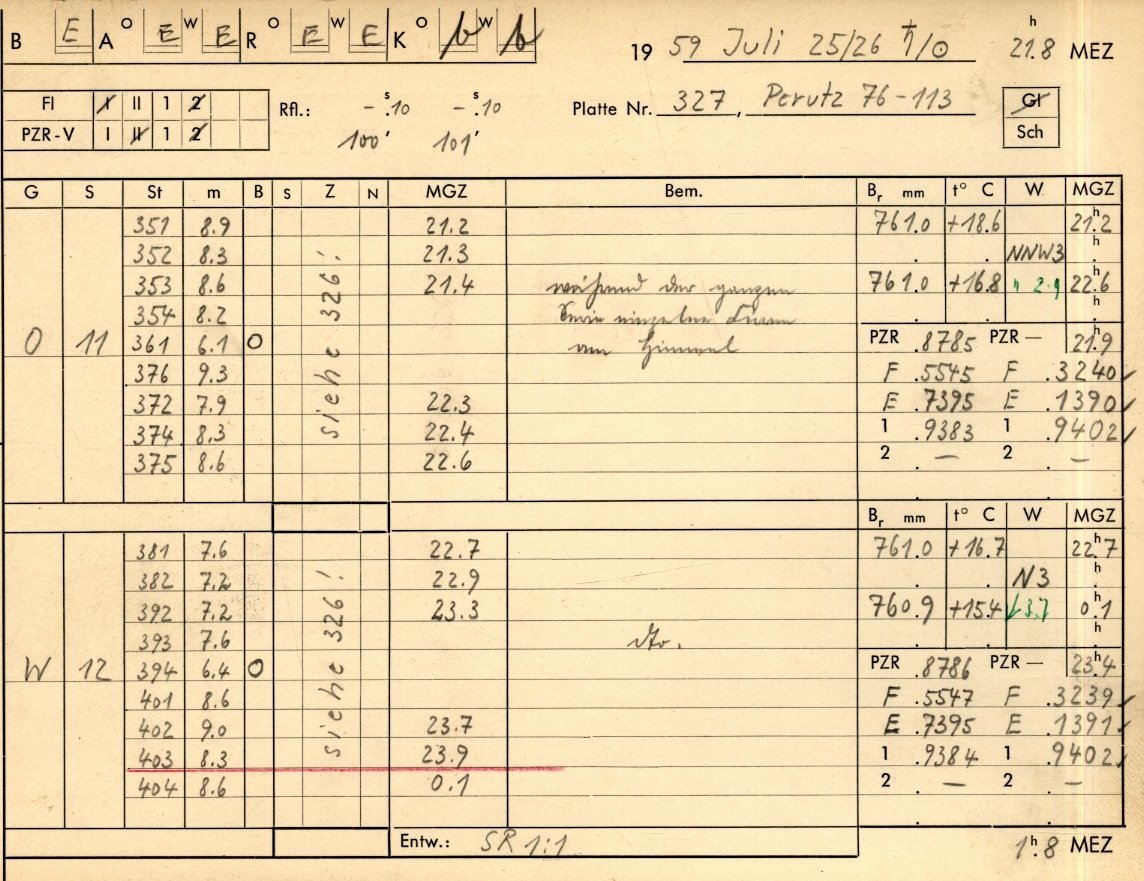 B E A O E W E R O E W E K O b W b
19 59 Juli 25/26 ♄/☉ 21.8 h MEZ
Fl I II 1 2 Rfl.: – s.10 – s.10 Platte Nr. 327, Perutz 76-113 Gl
PZR-V I II 1 2 100' 101' Sch
G S St m B S Z N MGZ Bem. Br mm t° C W. MGZ
351 8.9 21.2 761.0 +18.6 21.2 h
352 8.3 21.3 NNW3 h
353 8.6 21.4 während der ganzen 761.0 +16.8 " 2.9 22.6 h
354 8.2 Serie einzelne h
O 11 361 6.1 O siehe 326! am Himmel PZR .8785 PZR – 21.9 h
376 9.3 F .5545 F .3240 ✓
372 7.9 22.3 E .7395 E .1390 ✓
374 8.3 22.4 1 .9383 1 .9402 ✓
375 8.6 22.6 2 . – 2 . –
Br mm t° C W MGZ
381 7.6 22.7 761.0 +16.7 22.7 h
382 7.2 22.9 N3 h
392 7.2 23.3 760.9 +15.4 ↓3.7 0.1 h
393 7.6 dto. h
W 12 394 6.4 O siehe 326! PZR .8786 PZR – 23.4 h
401 8.6 F .5547 F .3239 ✓
402 9.0 23.7 E .7395 E .1391 ✓
403 8.3 23.9 1 .9384 1 .9402 ✓
404 8.6 0.1 2 . – 2 . –
Entw.: SR 1:1 1.8 h MEZ